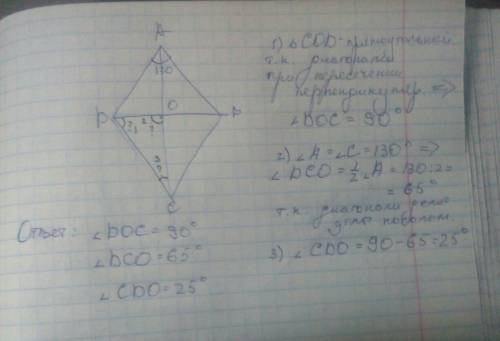 A
130
O
D
B
? 1
2 ?
3
?
C
1) ∆COD - прямоугольный
т.к. диагонали
при пересечении
перпендикуляр. =>
∠DOC = 90°
2) ∠A = ∠C = 130° =>
∠DCO = 1/2 ∠A = 130:2 =
= 65°
т.к. диагонали
делят пополам.
3) ∠CDO = 90-65=25°
Ответ: ∠DOC = 90°
∠DCO = 65°
∠CDO = 25°